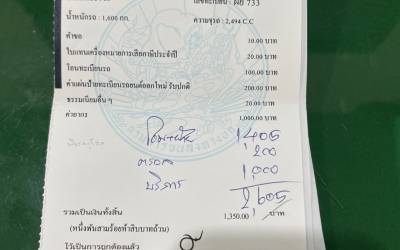 เลขทะเบียน : ผย 733
น้ำหนักรถ : 1,600 กก. ความจุรถ : 2,494 C.C
คำขอ 10.00 บาท
ใบแทนเครื่องหมายการเสียภาษีประจำปี 20.00 บาท
โอนทะเบียนรถ 100.00 บาท
ค่าแผ่นป้ายทะเบียนรถยนต์ออกใหม่ รับปกติ 200.00 บาท
ธรรมเนียมอื่น ๆ 20.00 บาท
ค่าอากร 1,000.00 บาท
1,405
ตรวจ 200
บริการ 1,000
2,605
รวมเป็นเงินทั้งสิ้น 1,350.00 บาท
(หนึ่งพันสามร้อยห้าสิบบาทถ้วน)
ไว้เป็นการถูกต้องแล้ว